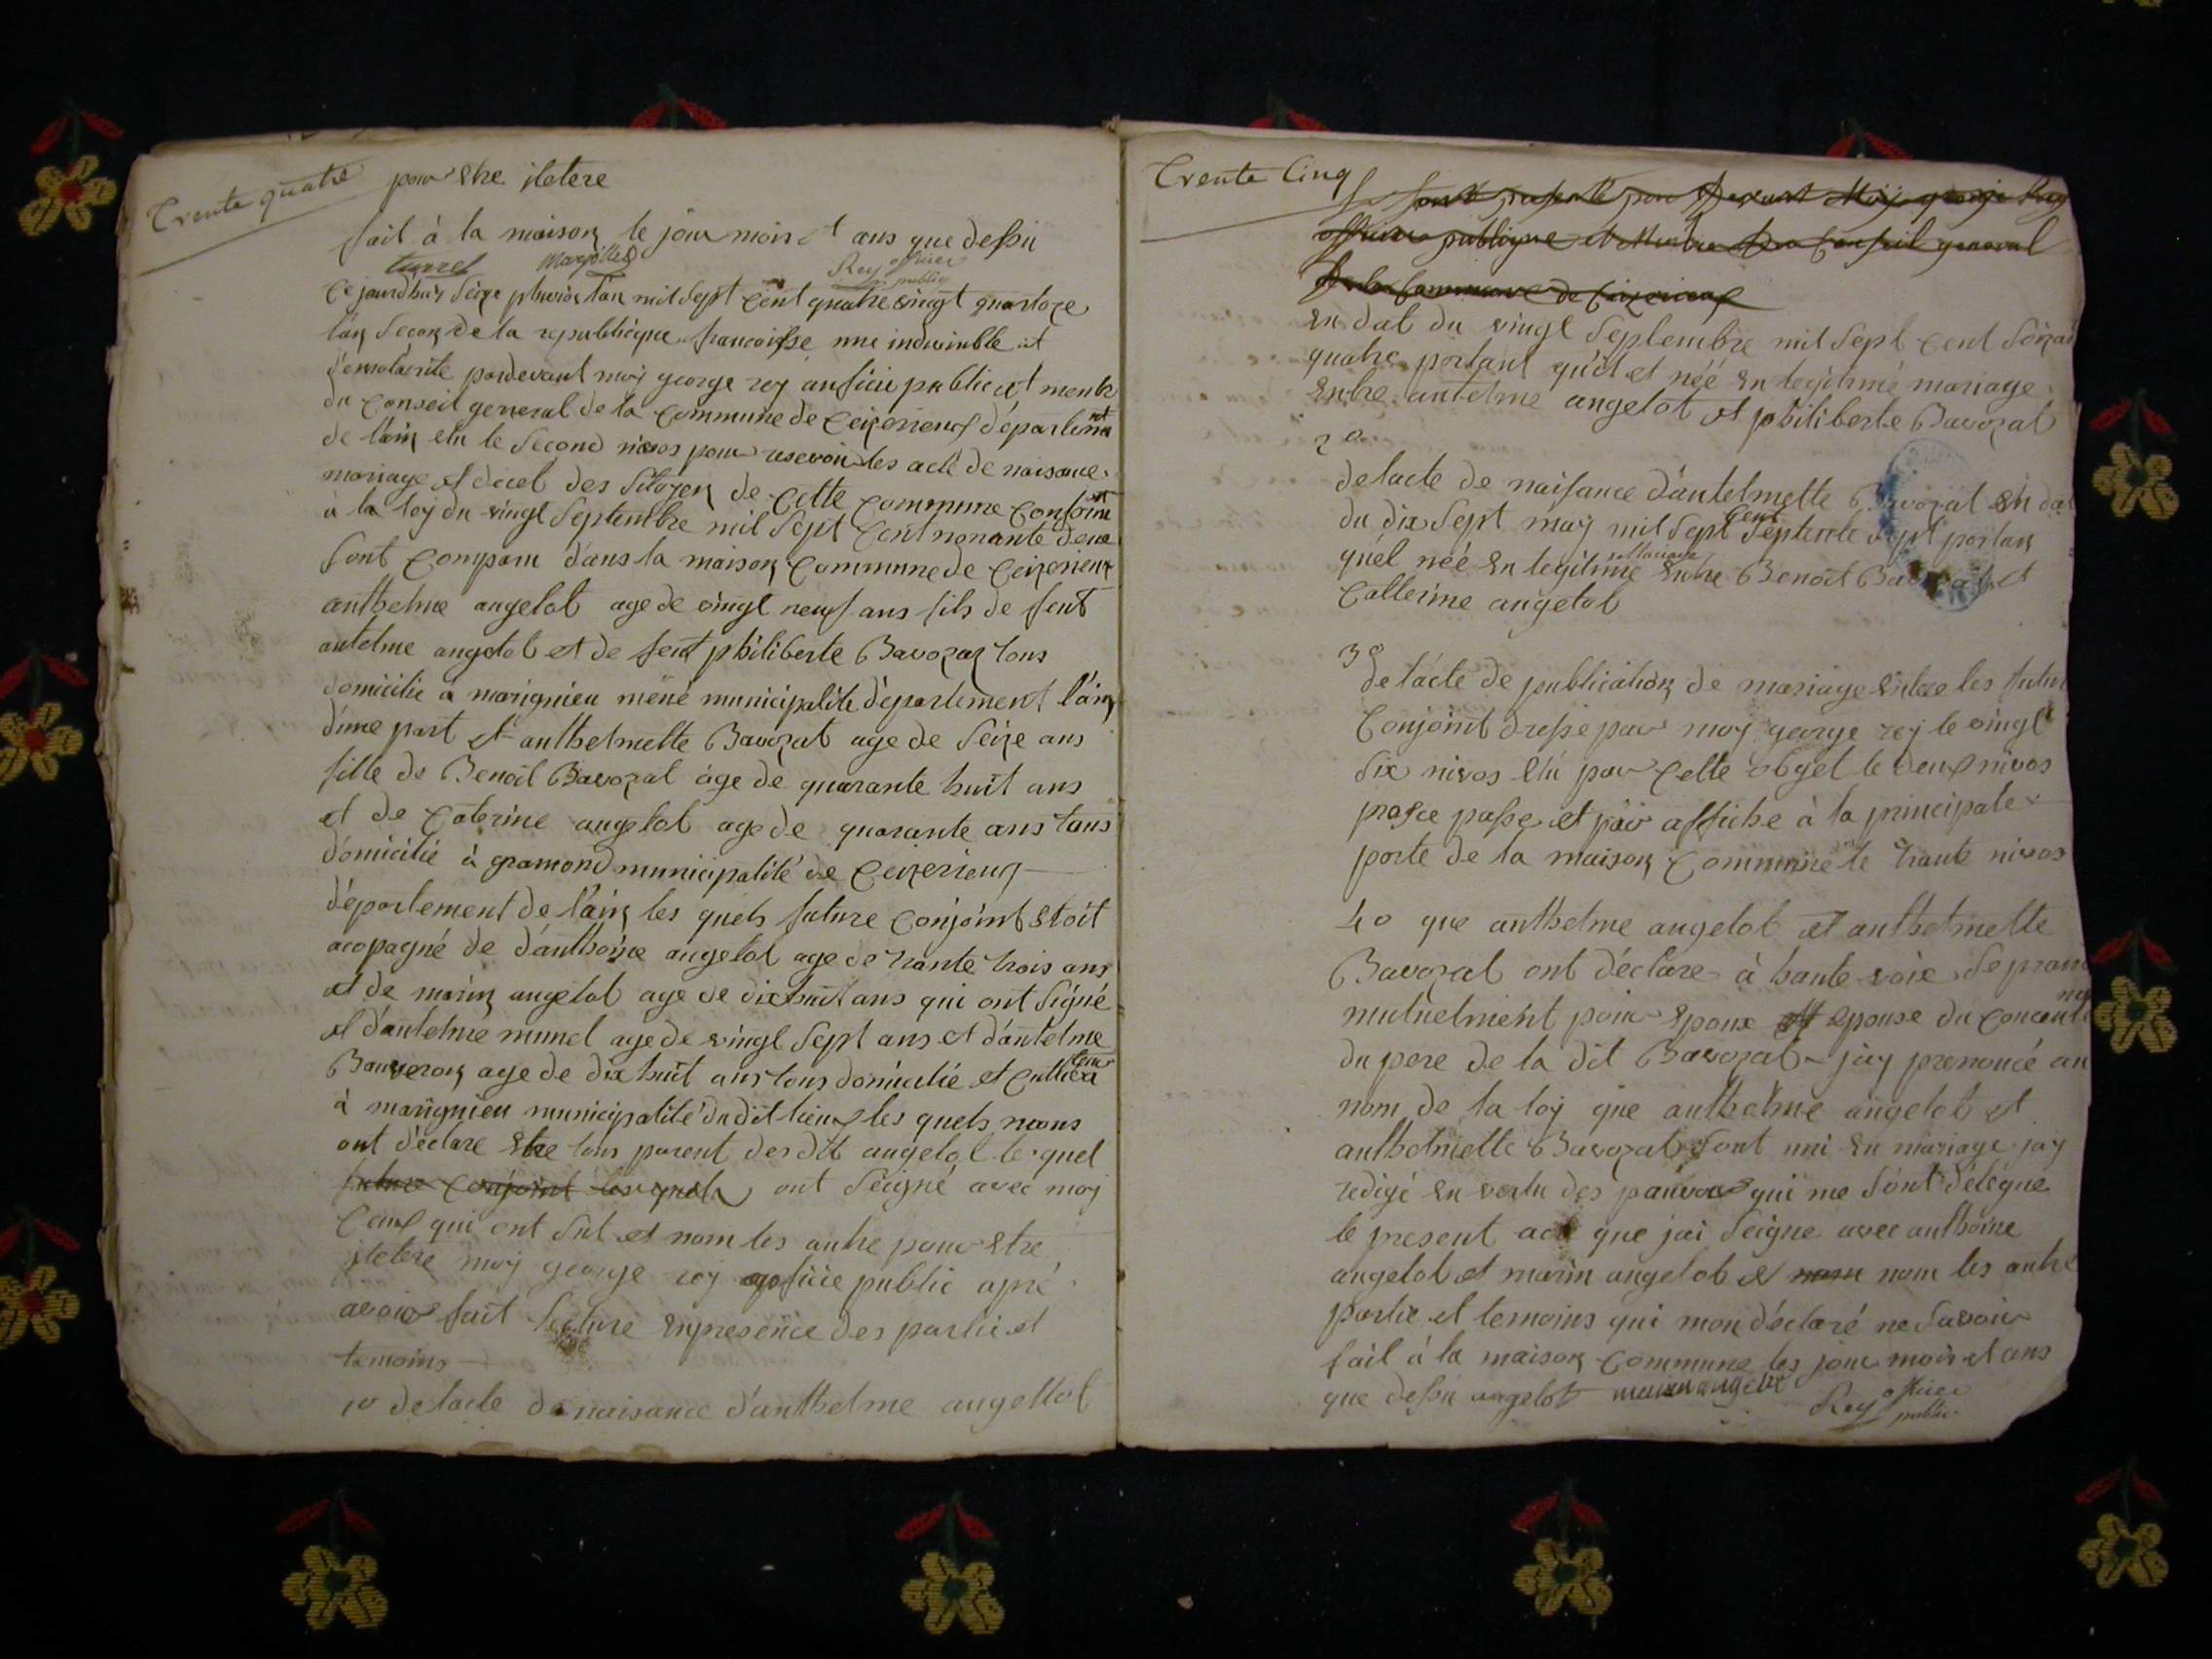 trente quatre
pour etre iletere
fait à la maison le jour mois et ans que dessu
turrel marjolle Rey officier public
Ce jourdhuy seize pluvios lan mil sept cent quatre vingt quatorze
lan second de la republicque francoisse une indivisible et
pardevant moy george rey auficie public et menbr
du conseil general de la commune de Ceizerieux départemnt
de lain elu le second nivos pour resevoir les acte de naisance
mariage et decet des sitoyen de cette commune conformt
à la loy du vingt septembre mil sept cent nonante deux
sont comparu dans la maison commune de Ceizerieux
anthelme angelot age de vingt neuf ans fils de feut
antelme angelot et de feut philiberte Bavozat tous
domicilie a marignieu même municipalite département l'ain
d'une part et anthelmette Bavozat age de seize ans
fille de Benoit Bavozat âge de quarante huit ans
et de Caterine angelot age de quarante ans tous
domicilié à gramond municipalité de Ceizerieux
département de l'ain les quels future conjoint etoit
acopagné de d'anthoine angelot age de trante trois ans
et de marin angelot age de dixhuit ans qui ont signé
et d'antelme munet age de vingt sept ans et d'antelme
Bauveron age de dix huit ans tous domicilié et cultivateur
à marignieu municipalité du dit lieux les quels nous
ont déclare etre tous parent des dit angelot les quel
future conjoint les quels ont seigné avec moy
ceux qui ont sut et nom les autre pour etre
iletere moy george rey oficie public apré
avoir fait lecture en presence des partie et
temoins
1o de lacte de naisance d'anthelme angellot
trente Cinq
sont presenté par devant Moy george Rey
officier publique et Membre du Conseil general
de la Commune de Ceizerieux
en dat du vingt septembre mil sept cent soixan
quatre portant qu'il et néé en legitime mariage
entre antelme angelot et philiberte Bavozat
2o
de lacte de naisance d'antelmette Bavozat en dat
du dix sept may mil sept cent septente sept portan
quel néé en legitime Mariage entre Benoit Bavozat et
Catterine angelot
3o
de l'acte de publication de mariage entre les futur
conjoint dressé par moy george rey le vingt
six nivos elu par cette obget le deux nivos
proche passe et pair affiche à la principale
porte de la maison commune le trante nivos
4o que anthelme angelot et anthelmette
Bavozat ont déclare à haute voix se prand
mutuelment pour epoux et epouse du concente
du pere de la dit Bavozat jay prenoncé au
nom de la loy que anthelme angelot et
anthelmette Bavozat sont uni en mariage jay
redigé en vertu des pauvoir qui me sont délégué
le present acte que jai seigne avec anthoine
angelot et marin angelot et nom nom les autre
partie et temoins qui mon déclaré ne savoir
fait à la maison commune les jour mois et ans
que dessu angelot marin angelot Rey officier public